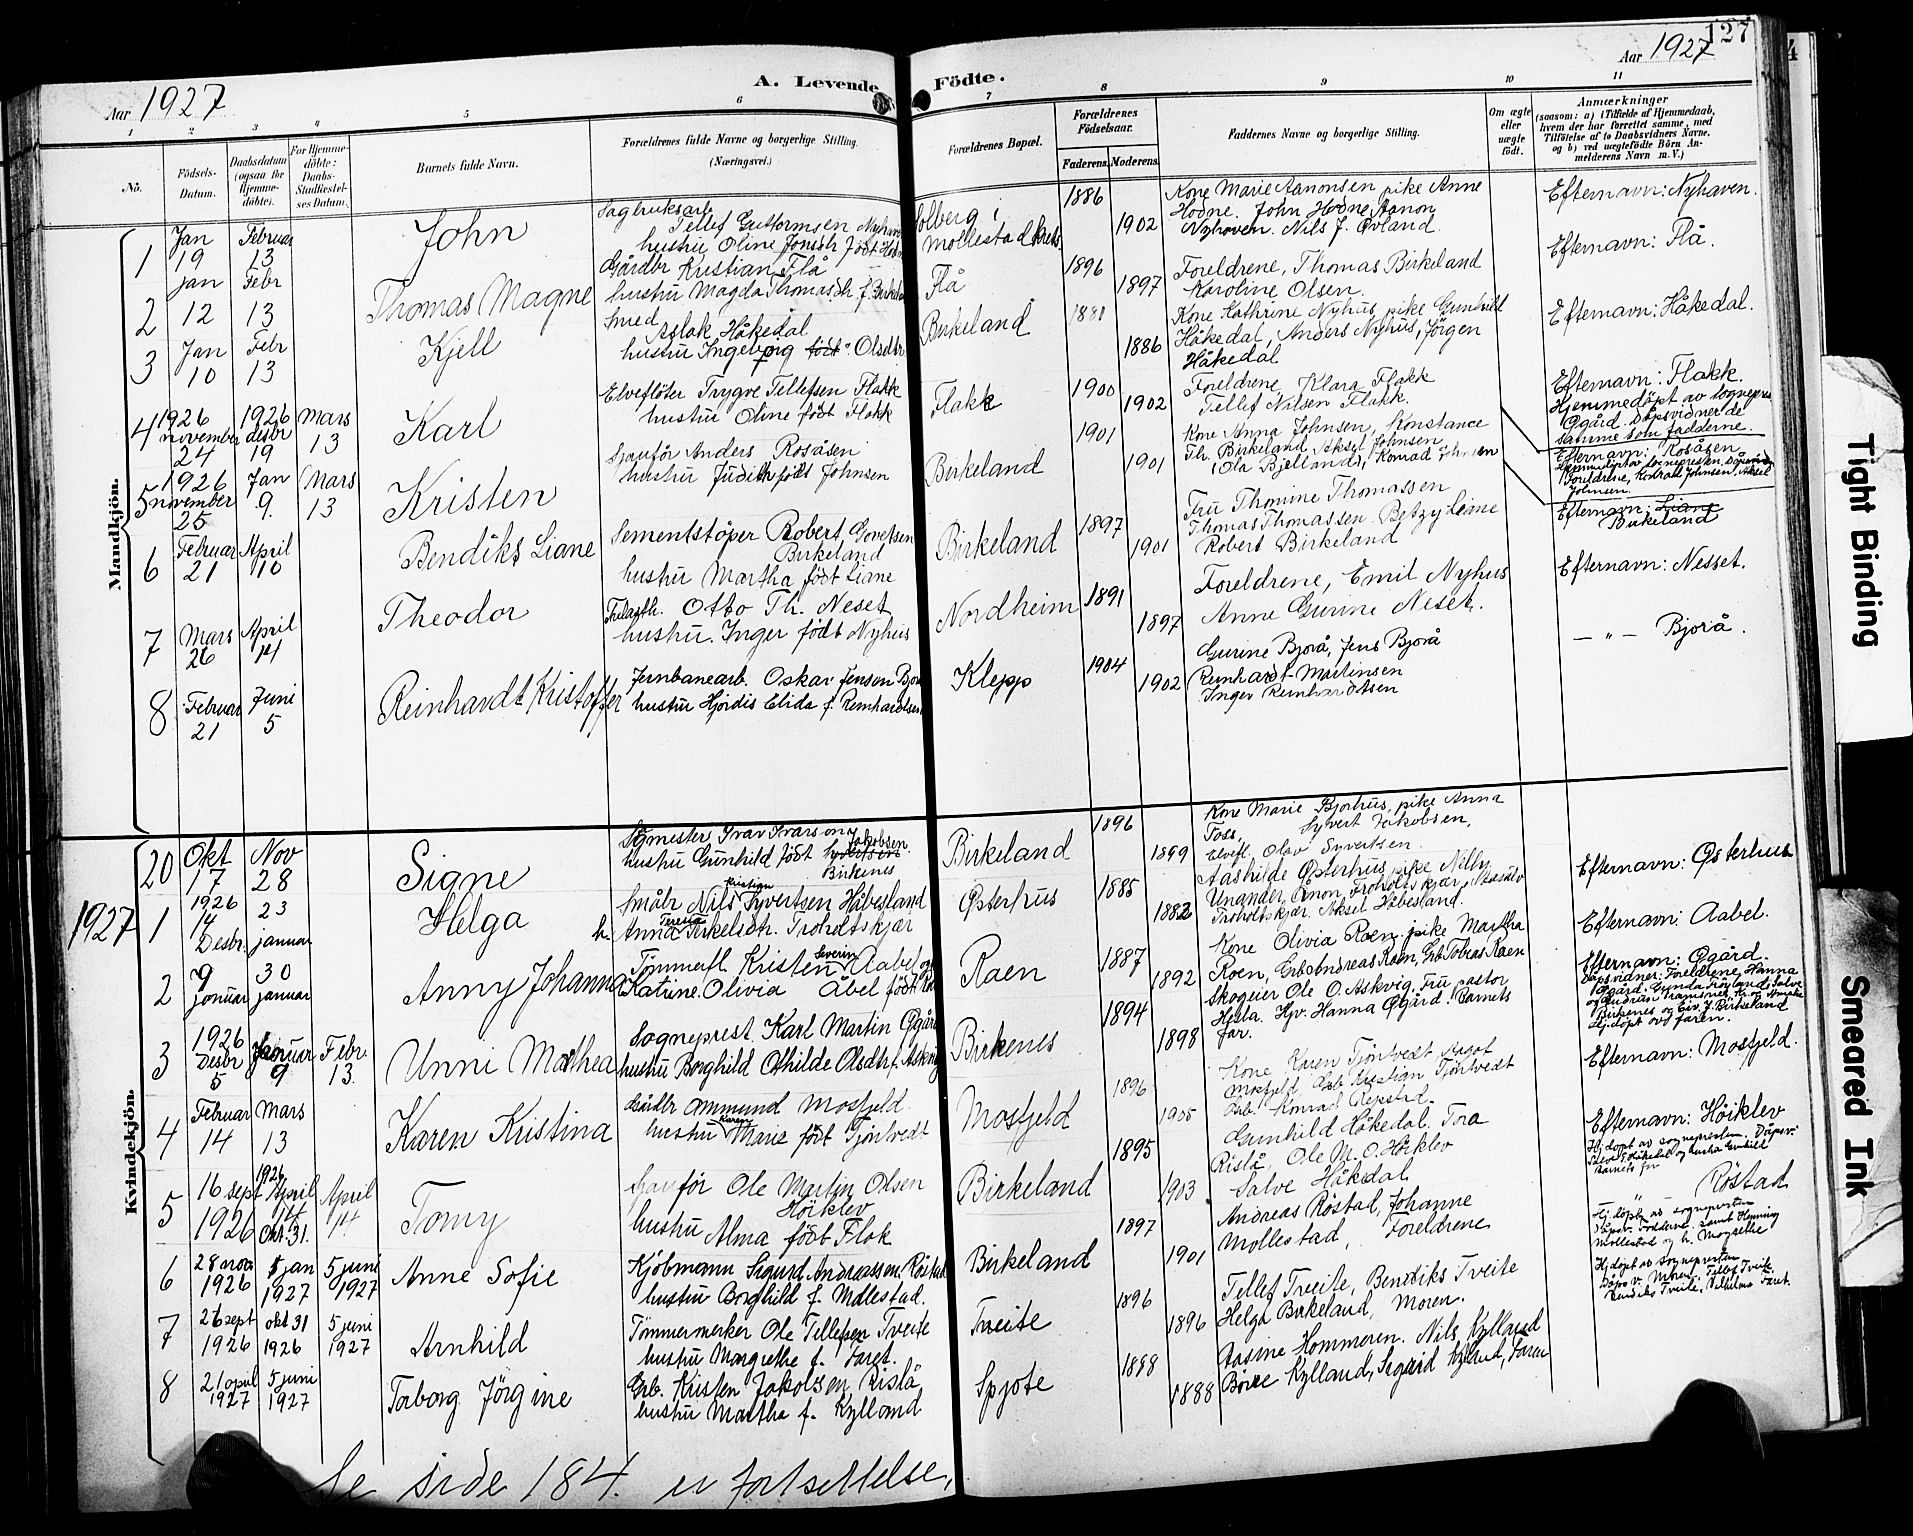 127
Aar 1927
A. Levende Födte.
Aar 1927
1 2 3 4 5 6 7 8 9 10 11
No.
Födsels-Datum.
Daabsdatum (ogsaa for Hjemme-döbte).
For Hjemme-döbte: Daabs-Stadfæstel-ses Datum.
Barnets fulde Navn.
Forældrenes fulde Navne og borgerlige Stilling.
(Næringsvei.)
Forældrenes Bopæl.
Forældrenes Födselsaar.
Faderens. Moderens.
Faddernes Navne og borgerlige Stilling.
Om ægte eller uægte födt.
Anmærkninger
(saasom: a) i Tilfælde af Hjemmedaab, hvem der har forrettet samme, med Tilföielse af to Daabsvidners Navne, og b) ved uægtefödte Börn Anmelderens Navn m. V.)
Mandkjön.
1 Jan 19 Februar 13
John
Sagbruksarb.
Tellef Guttormsen
hustru Oline
Mollestad
1886 1902
Kone Marie Aanonsen pike Anne
Hodne. John Hodne, Aanon
Nyhaven. Nils J. Øvland.
Efternavn: Nyhaven.
2 Jan 12 Febr 13
Thomas Magne
Gårdbr Kristian Flå
hustru Magda
Flå
1896 1897
Foreldrene, Thomas Birkeland
Karoline Olsen.
Efternavn: Flå.
3 Jan 10 Febr 13
Kjell
Smed
Aslak Håkedal
hustru Ingeborg født Olsdtr
Birkeland
1886
Kone Kathrine Nyhus, pike Gunhild
Håkedal, Anders Nyhus, Jørgen
Håkedal
Efternavn: Håkedal.
4 1926 november 24 1926 desbr 19 Mars 13
Karl
Elvefløter Trygve Tellefsen Flakk
hustru Oline født Flakk
Flakk
1900 1902
Foreldrene, Klara Flakk
Tellef Nilsen Flakk.
Efternavn: Flakk.
Hjemmedøpt av sogneprest
Øgård. Dåpsvidner de
samme som fadderne.
5 1926 november 25 Jan 9. Mars 13
Kristen
Sjauför Anders Rosåsen
hustru Judith født Johnsen
Birkeland
1901 1901
Kone Anna Johnsen, Konstance
Th. Birkeland, Aksel Johnsen,
Ola Bjelland, Konrad Johnsen
Efternavn: Rosåsen
Foreldrene, Konrad Johnsen, Aksel
Johnsen.
6 Februar 21 April 10
Bendiks Liane
Sementstöper Robert Govertsen
Birkeland
hustru Martha født Liane
Birkeland
1897 1901
Fru Thomine Thomassen
Thomas Thomassen. Betzy Leine
Robert Birkeland
Efternavn: Liane
Birkeland
7 Mars 26 April 14
Theodor
Otto Th. Neset
hustru. Inger født Nyhus
Nordheim
1891 1897
Foreldrene, Emil Nyhus
Anne Gurine Neset.
Efternavn: Nesset.
8 Februar 21 Juni 5
Reinhardt Kristoffer
Jernbanearb. Oskar Jensen
hustru Hjørdis Elida f. Reinhardtsen
Klepp
1904 1902
Gurine Bjorå, Jens Bjorå
Reinhardt Martinsen
Inger Reinhardtsen
— " — Bjorå.
Kvindekjön.
20 Okt 17 Nov 28
Signe
hustru Gunhild født Syvertsen Jakobsen
Birkenes
Birkeland
1896 1899
Kone Marie Bjorhus, pike Anna
Foss, Syvert Jakobsen,
Elvefl. Olav Syvertsen.
Efternavn: Østerhus
1927
1 1926 14 Desbr. 23 januar
Helga
Småbr Nils Kristian Syvertsen Håbesland
h. Anna Terese Terkelsdtr. Troholtskjær
Østerhus
1885 1882
Aashilde Østerhus, pike Nilly
Troholtskjær. Aksel Håbesland.
Efternavn: Aabel.
2 9 januar 30 januar
Anny Johanna
Tømmerfl Kristen Severin Aabel og
Katrine Olivia Åbel født
Raen
1887 1892
Kone Olivia Raen, pike Martha
Roen, Grb Andreas Raen, Grb Tobias Raen
Efternavn: Øgård.
Dåpsvidner: Foreldrene, Hanna
Hj. døpt av faren.
3 1926 Desbr 5 Januar 9 Febr. 13.
Unni Marthea
Sogneprest Karl Martin Øgård
hustru Borghild Othilde Olsdtr f. Askvig
Birkenes
1894 1898
Skogeier Ole O. Askvig, Fru pastor
Hesla. Hjv. Hanna Øgård. Barnets
far.
Efternavn: Mosfjeld.
4 Februar 14 Mars 13
Karen Kristina
Gårdbr Ommund Mosfjeld.
hustru Karen Marie født Tjøntvedt
Mosfjeld
1896 1905
Kone Karen Tjøntvedt, Aagot
Mosfjeld, Grb. Kristian Tjøntvedt
Grb. Konrad Repstad.
Efternavn: Høiklev
Hj. døpt av sognepresten. Dåpsv:
5 16 sept 1926 1926 April 14 Okt. 31. April 14
Tomy
Sjauför Ole Martin Olsen
Höiklev
hustru Alma født Flak
Birkeland
1895 1903
Gunhild Håkedal. Tora
Rislå, Ole M. O. Höiklev
Salve Håkedal
Röstad
Hj. døpt av sognepresten
6 28 1926 5 jan 1927 5 juni 1927
Anne Sofie
Kjöbmann Sigurd Andreassen Röstad
hustru Borghild f. Mollestad.
Birkeland
1897 1901
Andreas Röstad, Johanne
Mollestad, Foreldrene
Hj. døpt av sognepresten
Dåpsv. Moren, Tellef Tveite
Bendiks Tveite, Vilhelma Faret.
7 26 sept 1926 okt 31 1926 5 juni 1927
Arnhild
Tömmermerker Ole Tellefsen Tveite
hustru Margrethe f. Faret.
Tveite
1896 1896
Tellef Tveite, Bendiks Tveite
Helga Birkeland, Moren.
8 21 april 1927 5 juni 1927
Torborg Jörgine
Grb. Kristen Jakobsen Rislå
hustru Martha f. Kylland
Spjote
1888 1888
Aasine Hommeren. Nils Kylland
Börre Kylland, Sigurd Kylland, Faren
Se side 184. er fortsettelse,
Tight Binding
Smeared Ink